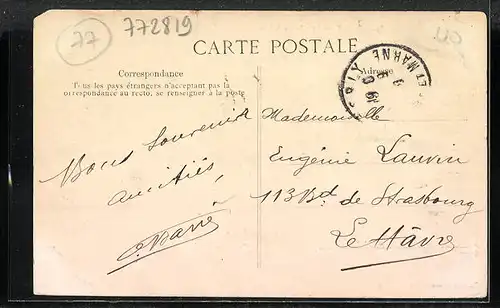 77
772819
CARTE POSTALE
Correspondance
Tous les pays étrangers n'acceptant pas la
correspondance au recto, se renseigner à la poste
Adresse
ET MARNE
Bons Souvenirs
amitiés,
Mademoiselle
Eugénie Lauvin
113 Bd de Strasbourg
Le Hâvre